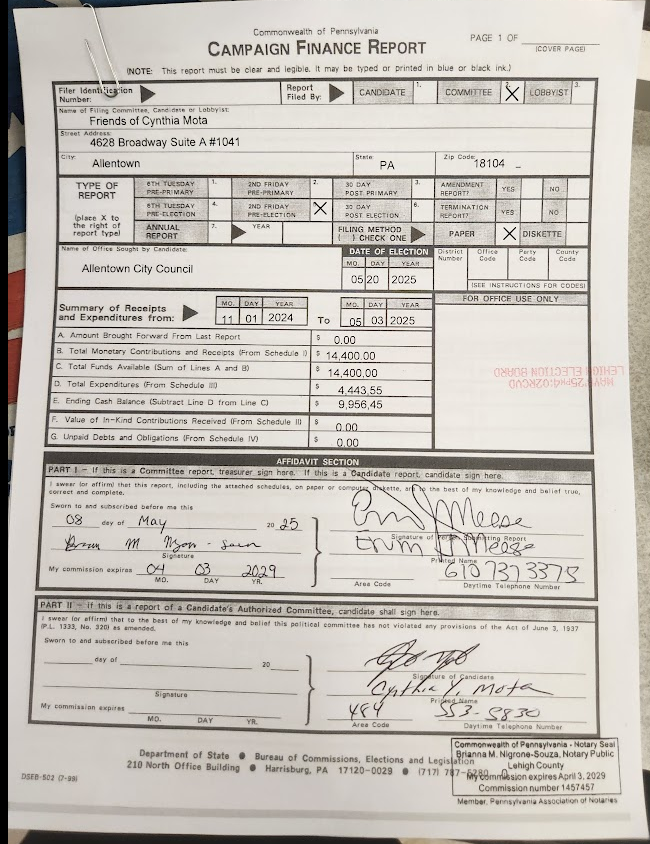 Commonwealth of Pennsylvania
CAMPAIGN FINANCE REPORT
PAGE 1 OF
(COVER PAGE)
(NOTE: This report must be clear and legible. It may be typed or printed in blue or black ink.)
Filer Identification Number:
Report Filed By:
CANDIDATE 1.
COMMITTEE 2. X
LOBBYIST 3.
Name of Filing Committee, Candidate or Lobbyist:
Friends of Cynthia Mota
Street Address:
4628 Broadway Suite A #1041
City: Allentown
State: PA
Zip Code 18104 -
TYPE OF REPORT
(place X to the right of report type)
6TH TUESDAY PRE-PRIMARY 1.
2ND FRIDAY PRE-PRIMARY 2.
30 DAY POST PRIMARY 3.
AMENDMENT REPORT? YES NO
6TH TUESDAY PRE-ELECTION 4.
2ND FRIDAY PRE-ELECTION X
30 DAY POST ELECTION 6.
TERMINATION REPORT? YES NO
ANNUAL REPORT 7.
YEAR
FILING METHOD ( ) CHECK ONE
PAPER X DISKETTE
Name of Office Sought by Candidate:
Allentown City Council
DATE OF ELECTION
MO. DAY YEAR
05 20 2025
District Number
Office Code
Party Code
County Code
(SEE INSTRUCTIONS FOR CODES)
Summary of Receipts and Expenditures from:
MO. DAY YEAR
11 01 2024
To
MO. DAY YEAR
05 03 2025
FOR OFFICE USE ONLY
A. Amount Brought Forward From Last Report $ 0.00
B. Total Monetary Contributions and Receipts (From Schedule I) $ 14,400.00
C. Total Funds Available (Sum of Lines A and B) $ 14,400.00
D. Total Expenditures (From Schedule III) $ 4,443.55
E. Ending Cash Balance (Subtract Line D from Line C) $ 9,956,45
F. Value of In-Kind Contributions Received (From Schedule II) $ 0.00
G. Unpaid Debts and Obligations (From Schedule IV) $ 0.00
LEHIGH ELECTION BOARD
AFFIDAVIT SECTION
PART I - If this is a Committee report, treasurer sign here. If this is a Candidate report, candidate sign here.
I swear (or affirm) that this report, including the attached schedules, on paper or computer diskette, are to the best of my knowledge and belief true, correct and complete.
Sworn to and subscribed before me this
08 day of May 20 25
Signature
My commission expires 04 03 2029
MO. DAY YR.
Signature of Person Submitting Report
Printed Name
610 737 3375
Area Code
Daytime Telephone Number
PART II - If this is a report of a Candidate's Authorized Committee, candidate shall sign here.
I swear (or affirm) that to the best of my knowledge and belief this political committee has not violated any provisions of the Act of June 3, 1937 (P.L. 1333, No. 320) as amended.
Sworn to and subscribed before me this
day of 20
Signature
My commission expires
MO. DAY YR.
Signature of Candidate
Cynthia Y. Mota
Printed Name
484 553-9830
Area Code
Daytime Telephone Number
Department of State ● Bureau of Commissions, Elections and Legislation
210 North Office Building ● Harrisburg, PA 17120-0029 ● (717) 787-5280
DSEB-502 (7-99)
Commonwealth of Pennsylvania - Notary Seal
Brianna M. Nigrone-Souza, Notary Public
Lehigh County
My commission expires April 3, 2029
Commission number 1457457
Member, Pennsylvania Association of Notaries